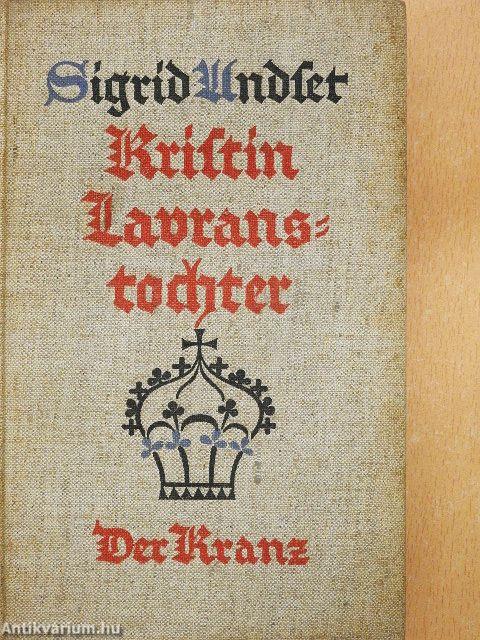 Sigrid Undſet
Kriſtin
Lavrans⸗
tochter
Der Kranz
Antikvárium.hu